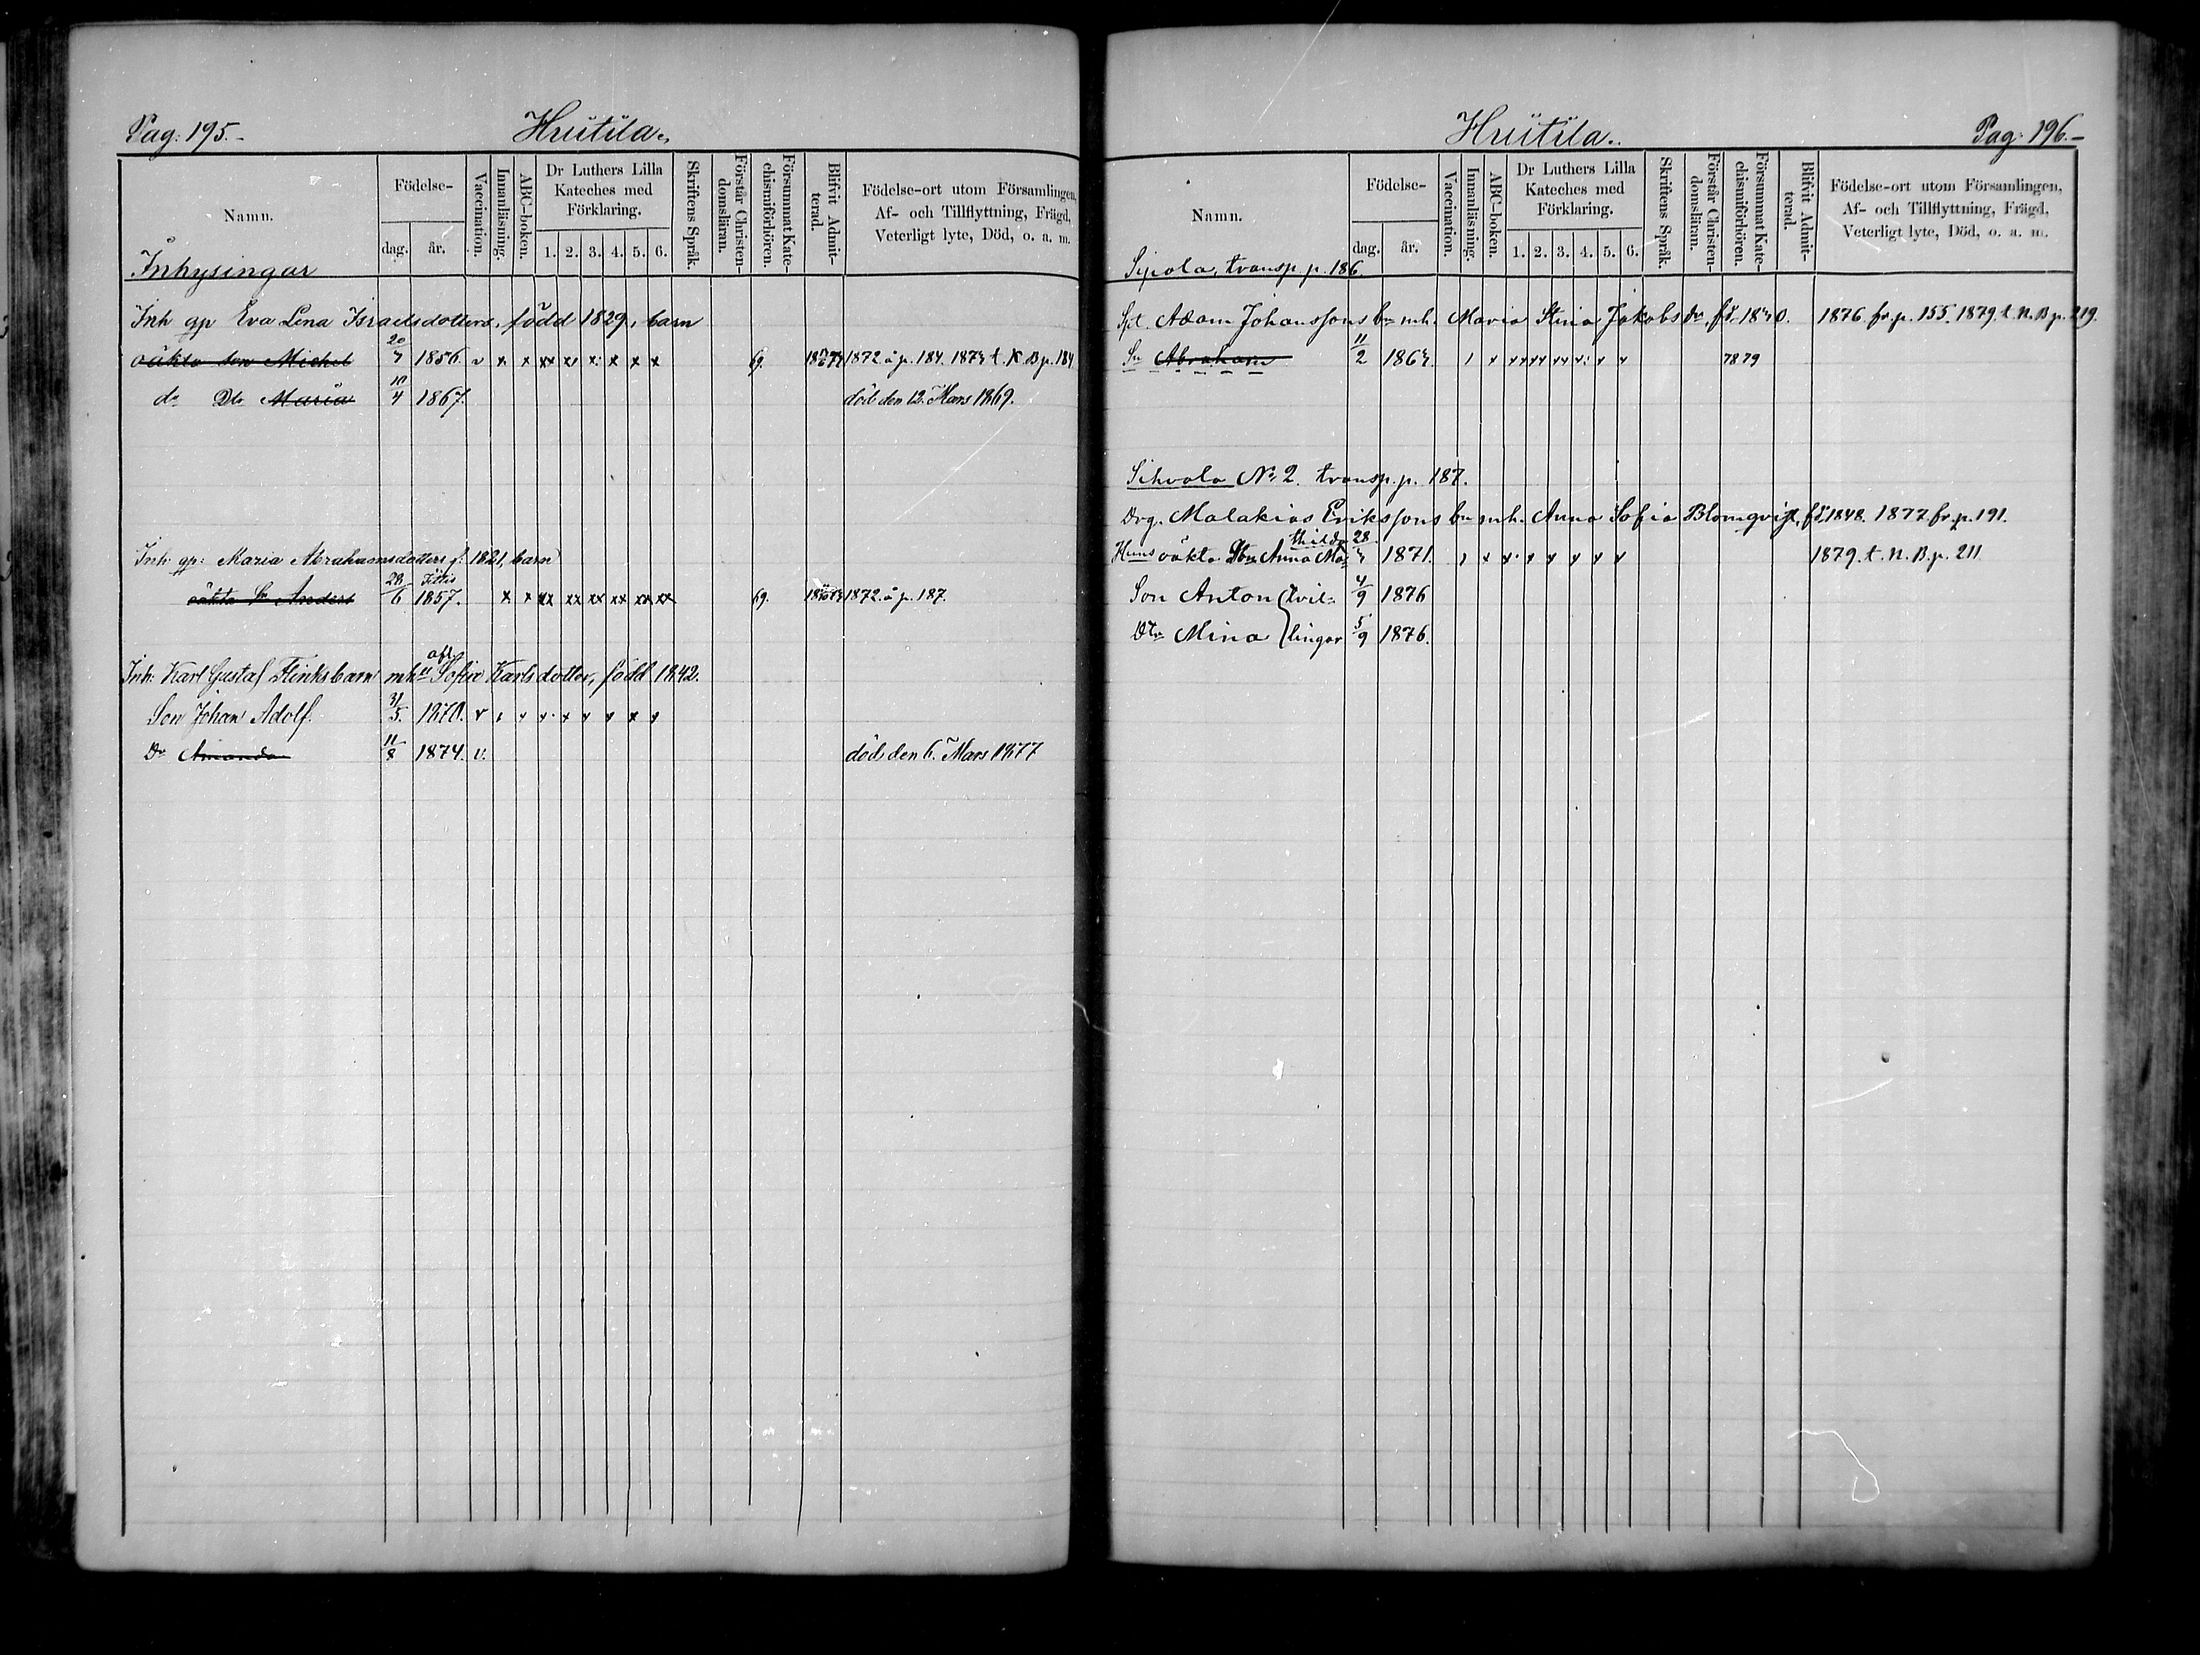 Pag: 195.-
Hiitila.
Namn.
Födelse-
dag.
år.
Vaccination.
Innanläsning.
ABC-boken.
Dr Luthers Lilla
Kateches med
Förklaring.
1. 2. 3. 4. 5. 6.
Skriftens Språk.
Förstår Christen-
domsläran.
Försummat Kate-
chismiförhören.
Blifvit Admit-
terad.
Födelse-ort utom Församlingen,
Af- och Tillflyttning, Frägd,
Veterligt lyte, Död, o. a. m.
Inhysingar
Inh gp Eva Lena Israelsdotters, född 1829, barn
oäkta son Michel 20/7 1856. v x x xx x x x x x 69. 1872 å p. 184. 1873 t. K. B p. 184
do Dtr Maria 10/4 1867. död den 12. Mars 1869.
Inh. gp: Maria Abrahamsdotters f. 1821, barn
oäkta Sn Anders 28/6 1857. x x xx xx xx xx xx xx 69. 1872 å p. 187.
Inh. Karl Gustaf Flinks barn mh afl. Sofia Karlsdotter, född 1842.
Son Johan Adolf. 31/5. 1870. v
Dr Amanda 11/8 1874. v. död den 6. Mars 1877
Hiitila.
Pag: 196.-
Namn.
Födelse-
dag.
år.
Vaccination.
Innanläsning.
ABC-boken.
Dr Luthers Lilla
Kateches med
Förklaring.
1. 2. 3. 4. 5. 6.
Skriftens Språk.
Förstår Christen-
domsläran.
Försummat Kate-
chismiförhören.
Blifvit Admit-
terad.
Födelse-ort utom Församlingen,
Af- och Tillflyttning, Frägd,
Veterligt lyte, Död, o. a. m.
Sipola, transp. p. 186
Adam Johanssons bn mh. Maria Stina Jakobsdr, 1876 fr. p. 155. 1879 t. N. B p. 219.
Sn Abraham 11/2 78 79
Sihvola No 2. transp. p. 187.
Drg. Malakias Erikssons bn mh. Anna Sofia Blomqvist, fd. 1848. 1877 fr. p. 191.
Hans oäkta Dtr Anna Mathilda 28 1871. 1879. t. N. B. p. 211
Son Anton tvil- 4/9 1876
Dtr Mina lingar 5/9 1876.